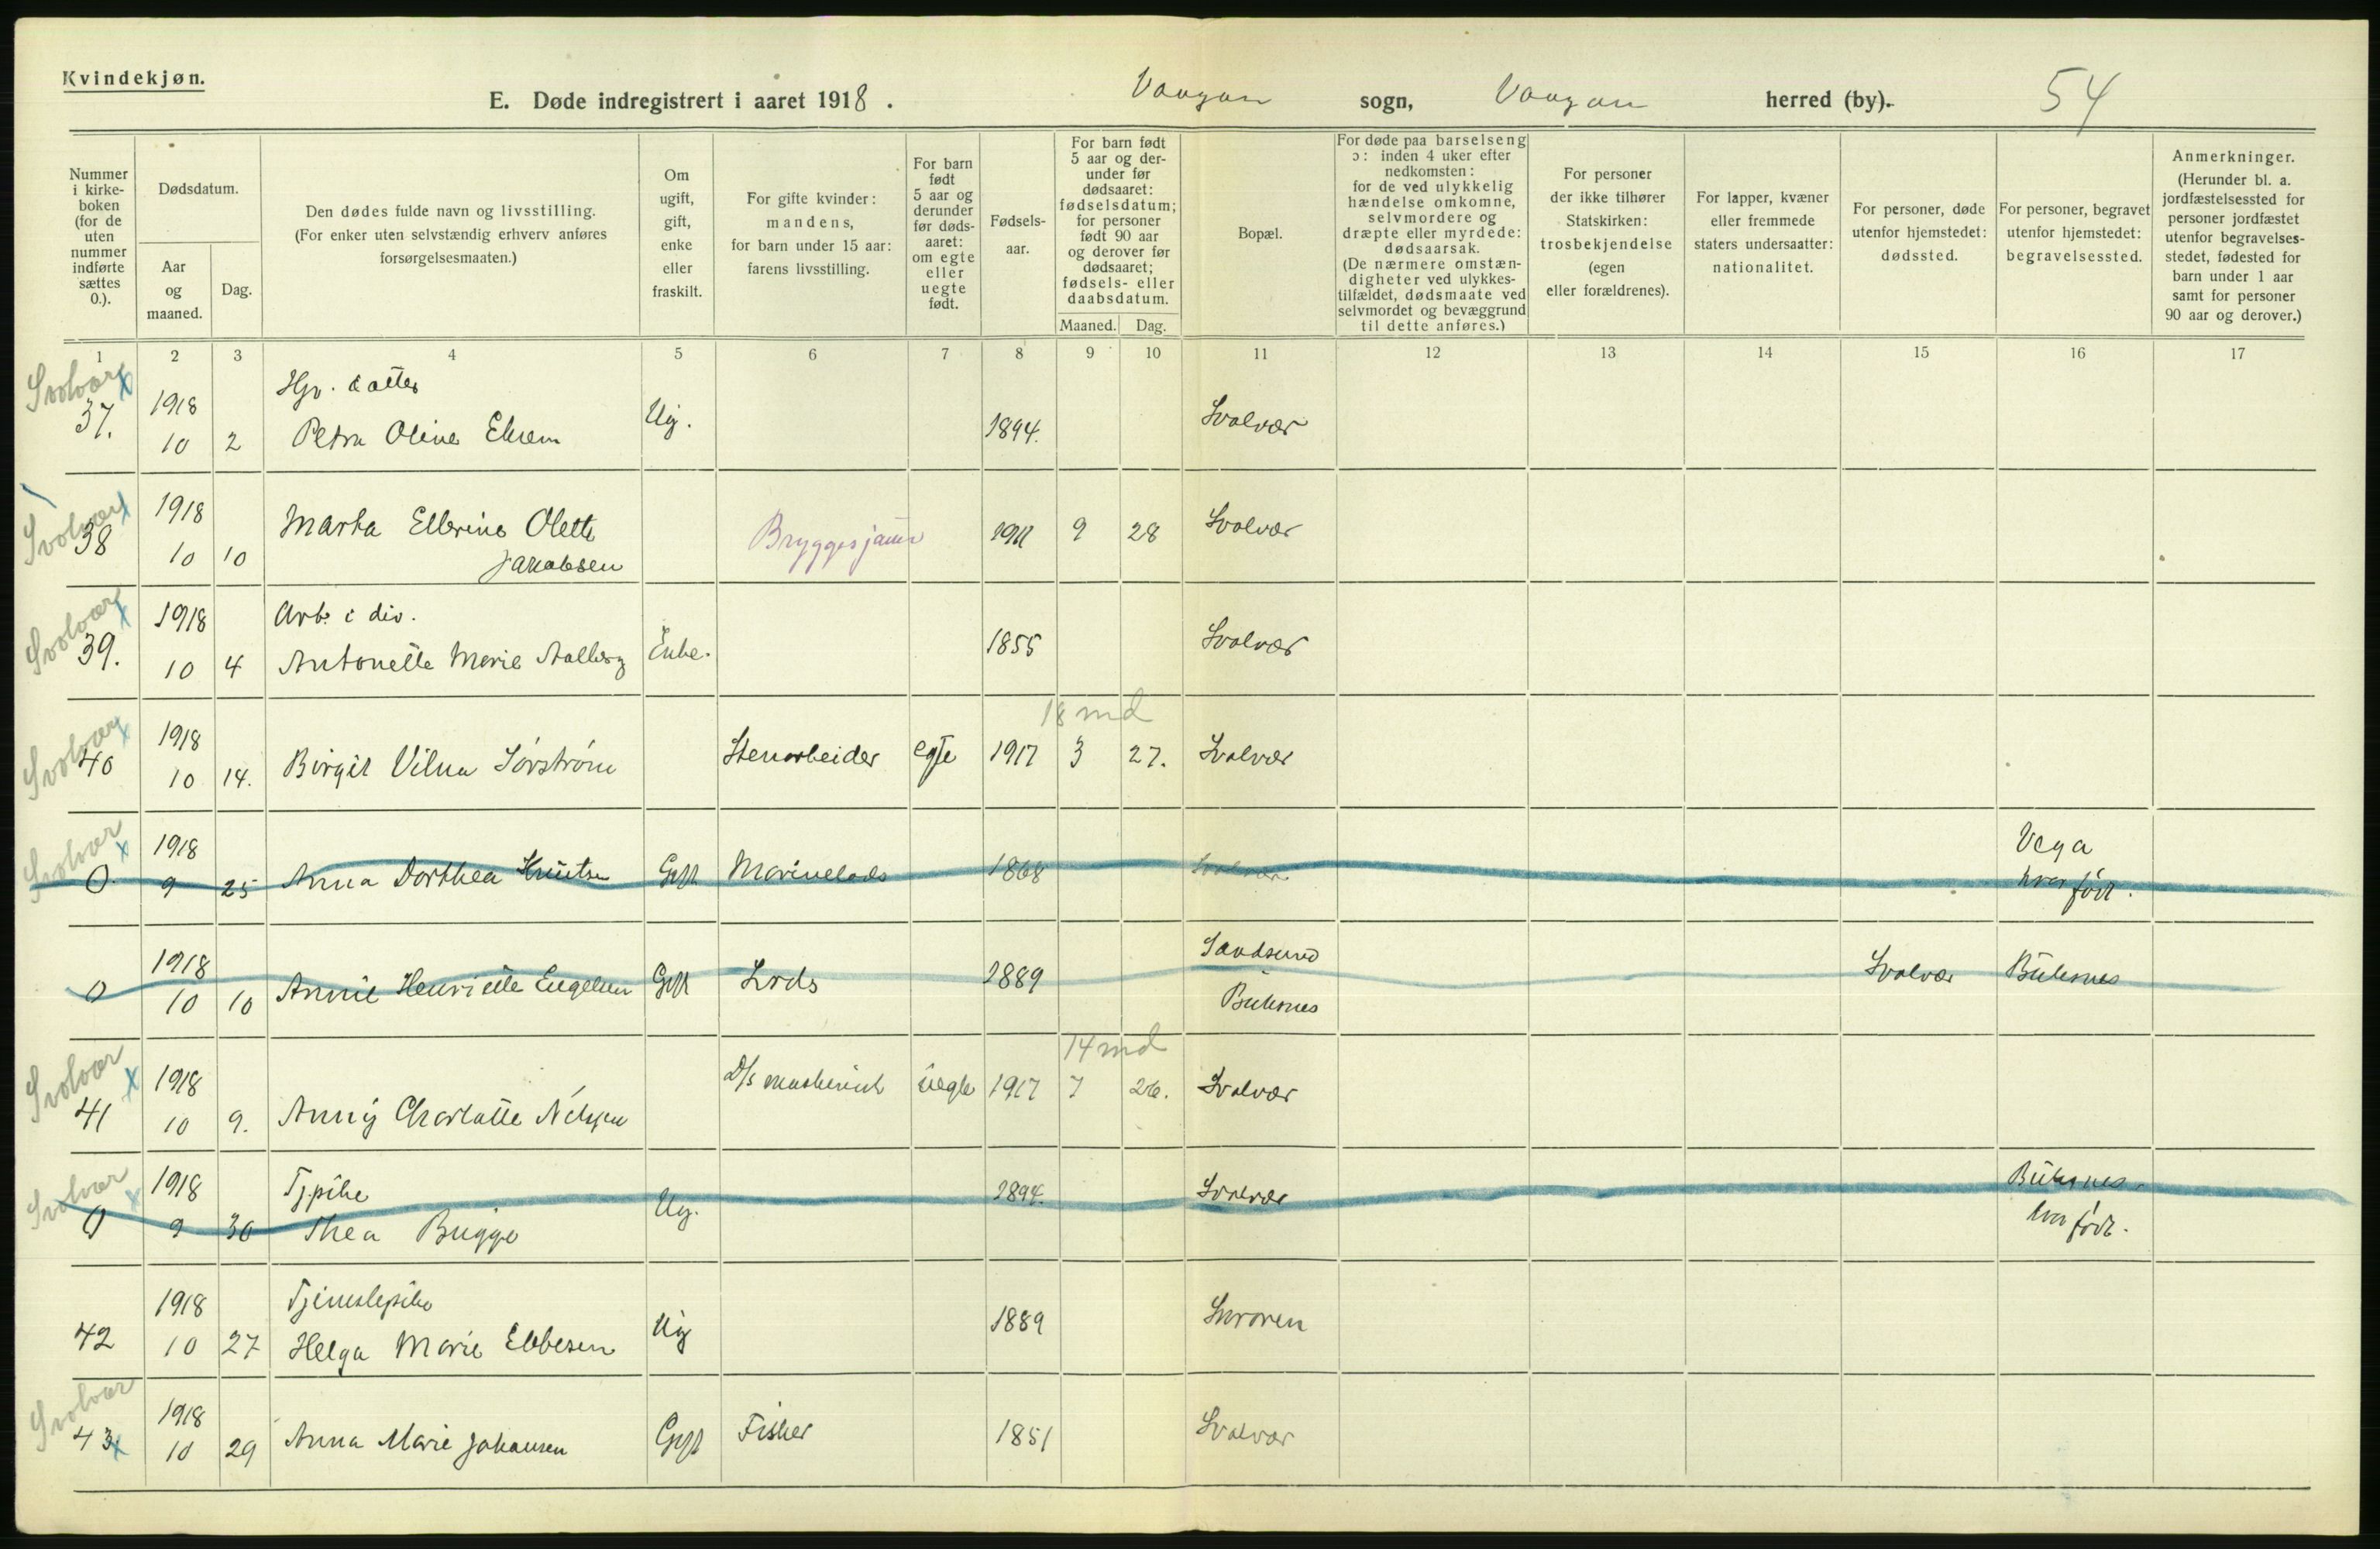 Kvindekjøn.
E. Døde indregistrert i aaret 1918.
Vaagan sogn, Vaagan herred (by).
54
Nummer i kirkeboken (for de uten nummer indførte sættes 0.).
Dødsdatum.
Aar og maaned.
Dag.
Den dødes fulde navn og livsstilling.
(For enker uten selvstændig erhverv anføres forsørgelsesmaaten.)
Om ugift, gift, enke eller fraskilt.
For gifte kvinder: mandens, for barn under 15 aar: farens livsstilling.
For barn født 5 aar og derunder før dødsaaret: om egte eller uegte født.
Fødselsaar.
For barn født 5 aar og derunder før dødsaaret: fødselsdatum; for personer født 90 aar og derover før dødsaaret; fødsels- eller daabsdatum.
Maaned. Dag.
Bopæl.
For døde paa barselseng ɔ: inden 4 uker efter nedkomsten: for de ved ulykkelig hændelse omkomne, selvmordere og dræpte eller myrdede: dødsaarsak.
(De nærmere omstændigheter ved ulykkestilfældet, dødsmaate ved selvmordet og bevæggrund til dette anføres.)
For personer der ikke tilhører Statskirken: trosbekjendelse (egen eller forældrenes).
For lapper, kvæner eller fremmede staters undersaatter: nationalitet.
For personer, døde utenfor hjemstedet: dødssted.
For personer, begravet utenfor hjemstedet: begravelsessted.
Anmerkninger.
(Herunder bl. a. jordfæstelsessted for personer jordfæstet utenfor begravelsesstedet, fødested for barn under 1 aar samt for personer 90 aar og derover.)
1 2 3 4 5 6 7 8 9 10 11 12 13 14 15 16 17
Svolvær x
1918 Hjv. datter
37. 10 2 Petra Oline Ug. 1894. Svolvær
Svolvær x
1918 Marta Ellerine Olette
38 10 10 Jakobsen Bryggesjauer 1911 9 28 Svolvær
Svolvær x
1918 Arb. i div.
39. 10 4 Antonette Marie Aalberg Enke. 1855 Svolvær
Svolvær x
18 md
1918
40 10 14. Birgit Vilna Sørstrøm Stenarbeider egte 1917 3 27. Svolvær
Svolvær x
1918 Vega
0 9 25 Anna Dorthea Knutsen Gift Marinelods 1868 Svolvær hvor født.
1918 Sandsund
0 10 10 Annie Henriette Engelsen Gift Lods 1889 Buksnes Svolvær Buksnes
Svolvær x
14 md
1918 D/s maskinist uegte 1917 7 26. Svolvær
41 10 9. Anny Charlotte Nilssen
Svolvær x
1918 Tj.pike Ug. 1894. Svolvær Buksnes,
0 9 30 Thea Brigge hvor født.
1918 Tjenestepike
42 10 27 Helga Marie Ebbesen Ug 1889 Skroven
Svolvær
1918
43. x 10 29 Anna Marie Johansen Gift Fisker 1851 Svolvær